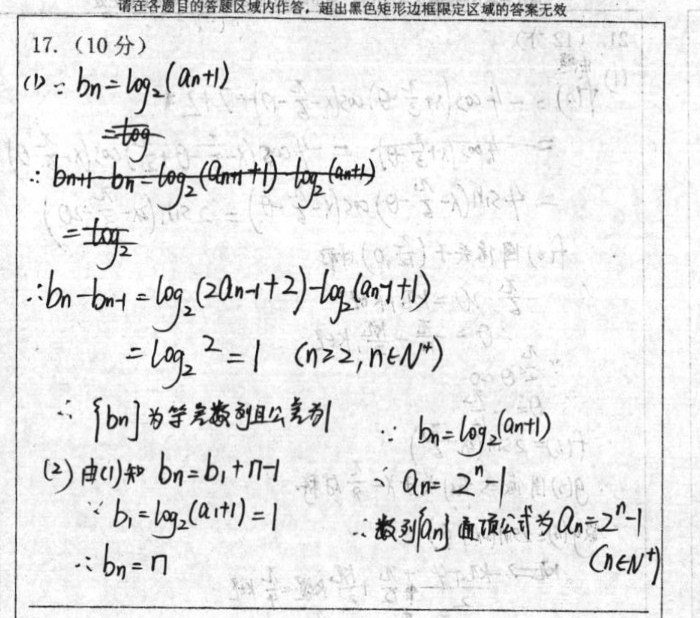 请在各题目的答题区域内作答，超出黑色矩形边框限定区域的答案无效
17.（10分）
(1) ∵ bn=log₂(an+1)
=log
∴ bn+1-bn=log₂(an+1+1)-log₂(an+1)
=log₂
∴bn-bn-1=log₂(2an-1+2)-log₂(an-1+1)
=log₂2=1 (n≥2,n∈N⁺)
∴ {bn}为等差数列且公差为1
(2) 由(1)知 bn=b₁+n-1
∵ b₁=log₂(a₁+1)=1
∴bn=n
∵ bn=log₂(an+1)
∴ an=2ⁿ-1
∴数列{an}通项公式为an=2ⁿ-1
(n∈N⁺)